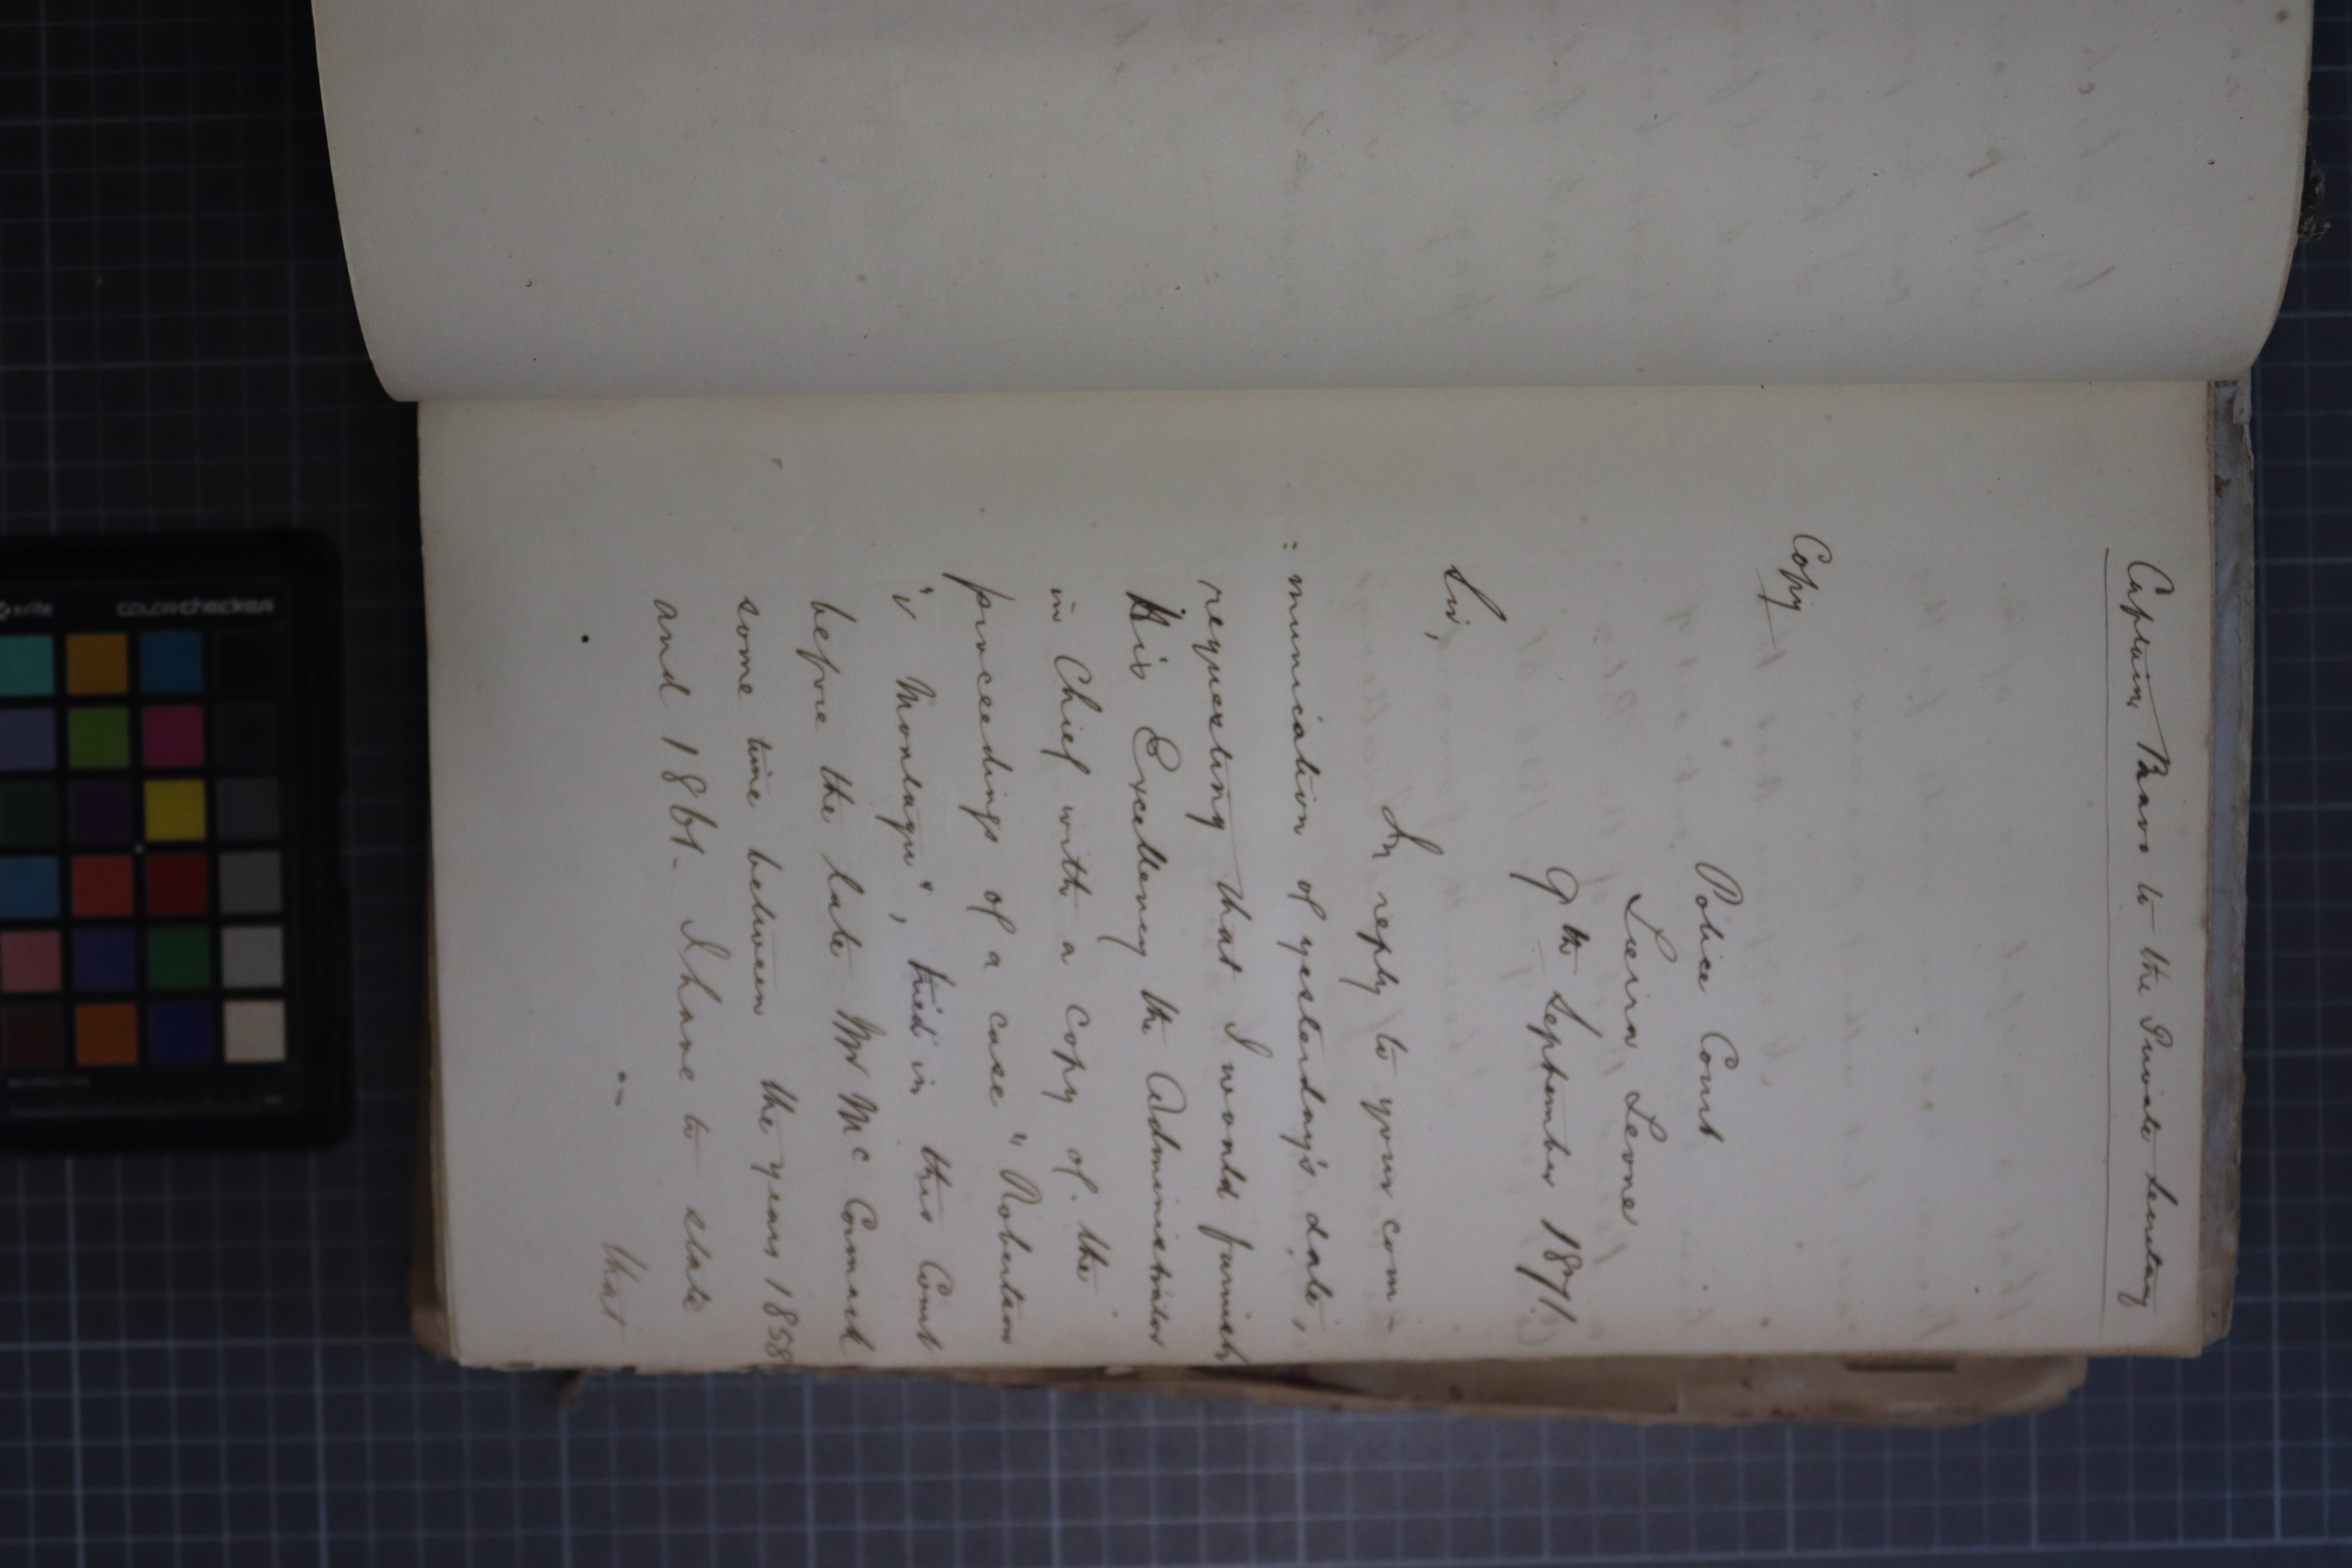 Captain Bravo to the Private Secretary
Copy
Police Court
Sierra Leone
9th September 1871.
Sir,
In reply to your com
=munication of yesterday's date,
requesting that I would furnish
His Excellency the Administrator
in Chief with a copy of the
proceedings of a case "Robertson
"v Montague", tried in this Court
before the late Mr McCormack
some time between the years 1858
and 1861. I have to state
that
colorchecker
x-rite